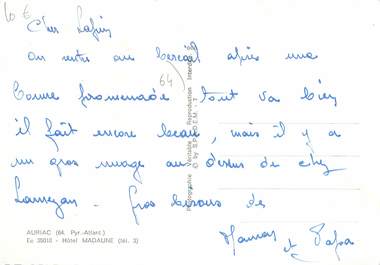 10 €
Cher Lapin,
On rentre au bercail après une
bonne promenade tout va bien
64
il fait encore beau, mais il y a
un gros nuage au dessus de chez
Lannezan. Gros bisous de
Maman et Papa
AURIAC (64. Pyr.-Atlant.)
Ex 35010 - Hôtel MADAUNE (tél. 3)
Photographie Véritable - Reproduction Interdite
© by S.P.A.D.E.M.